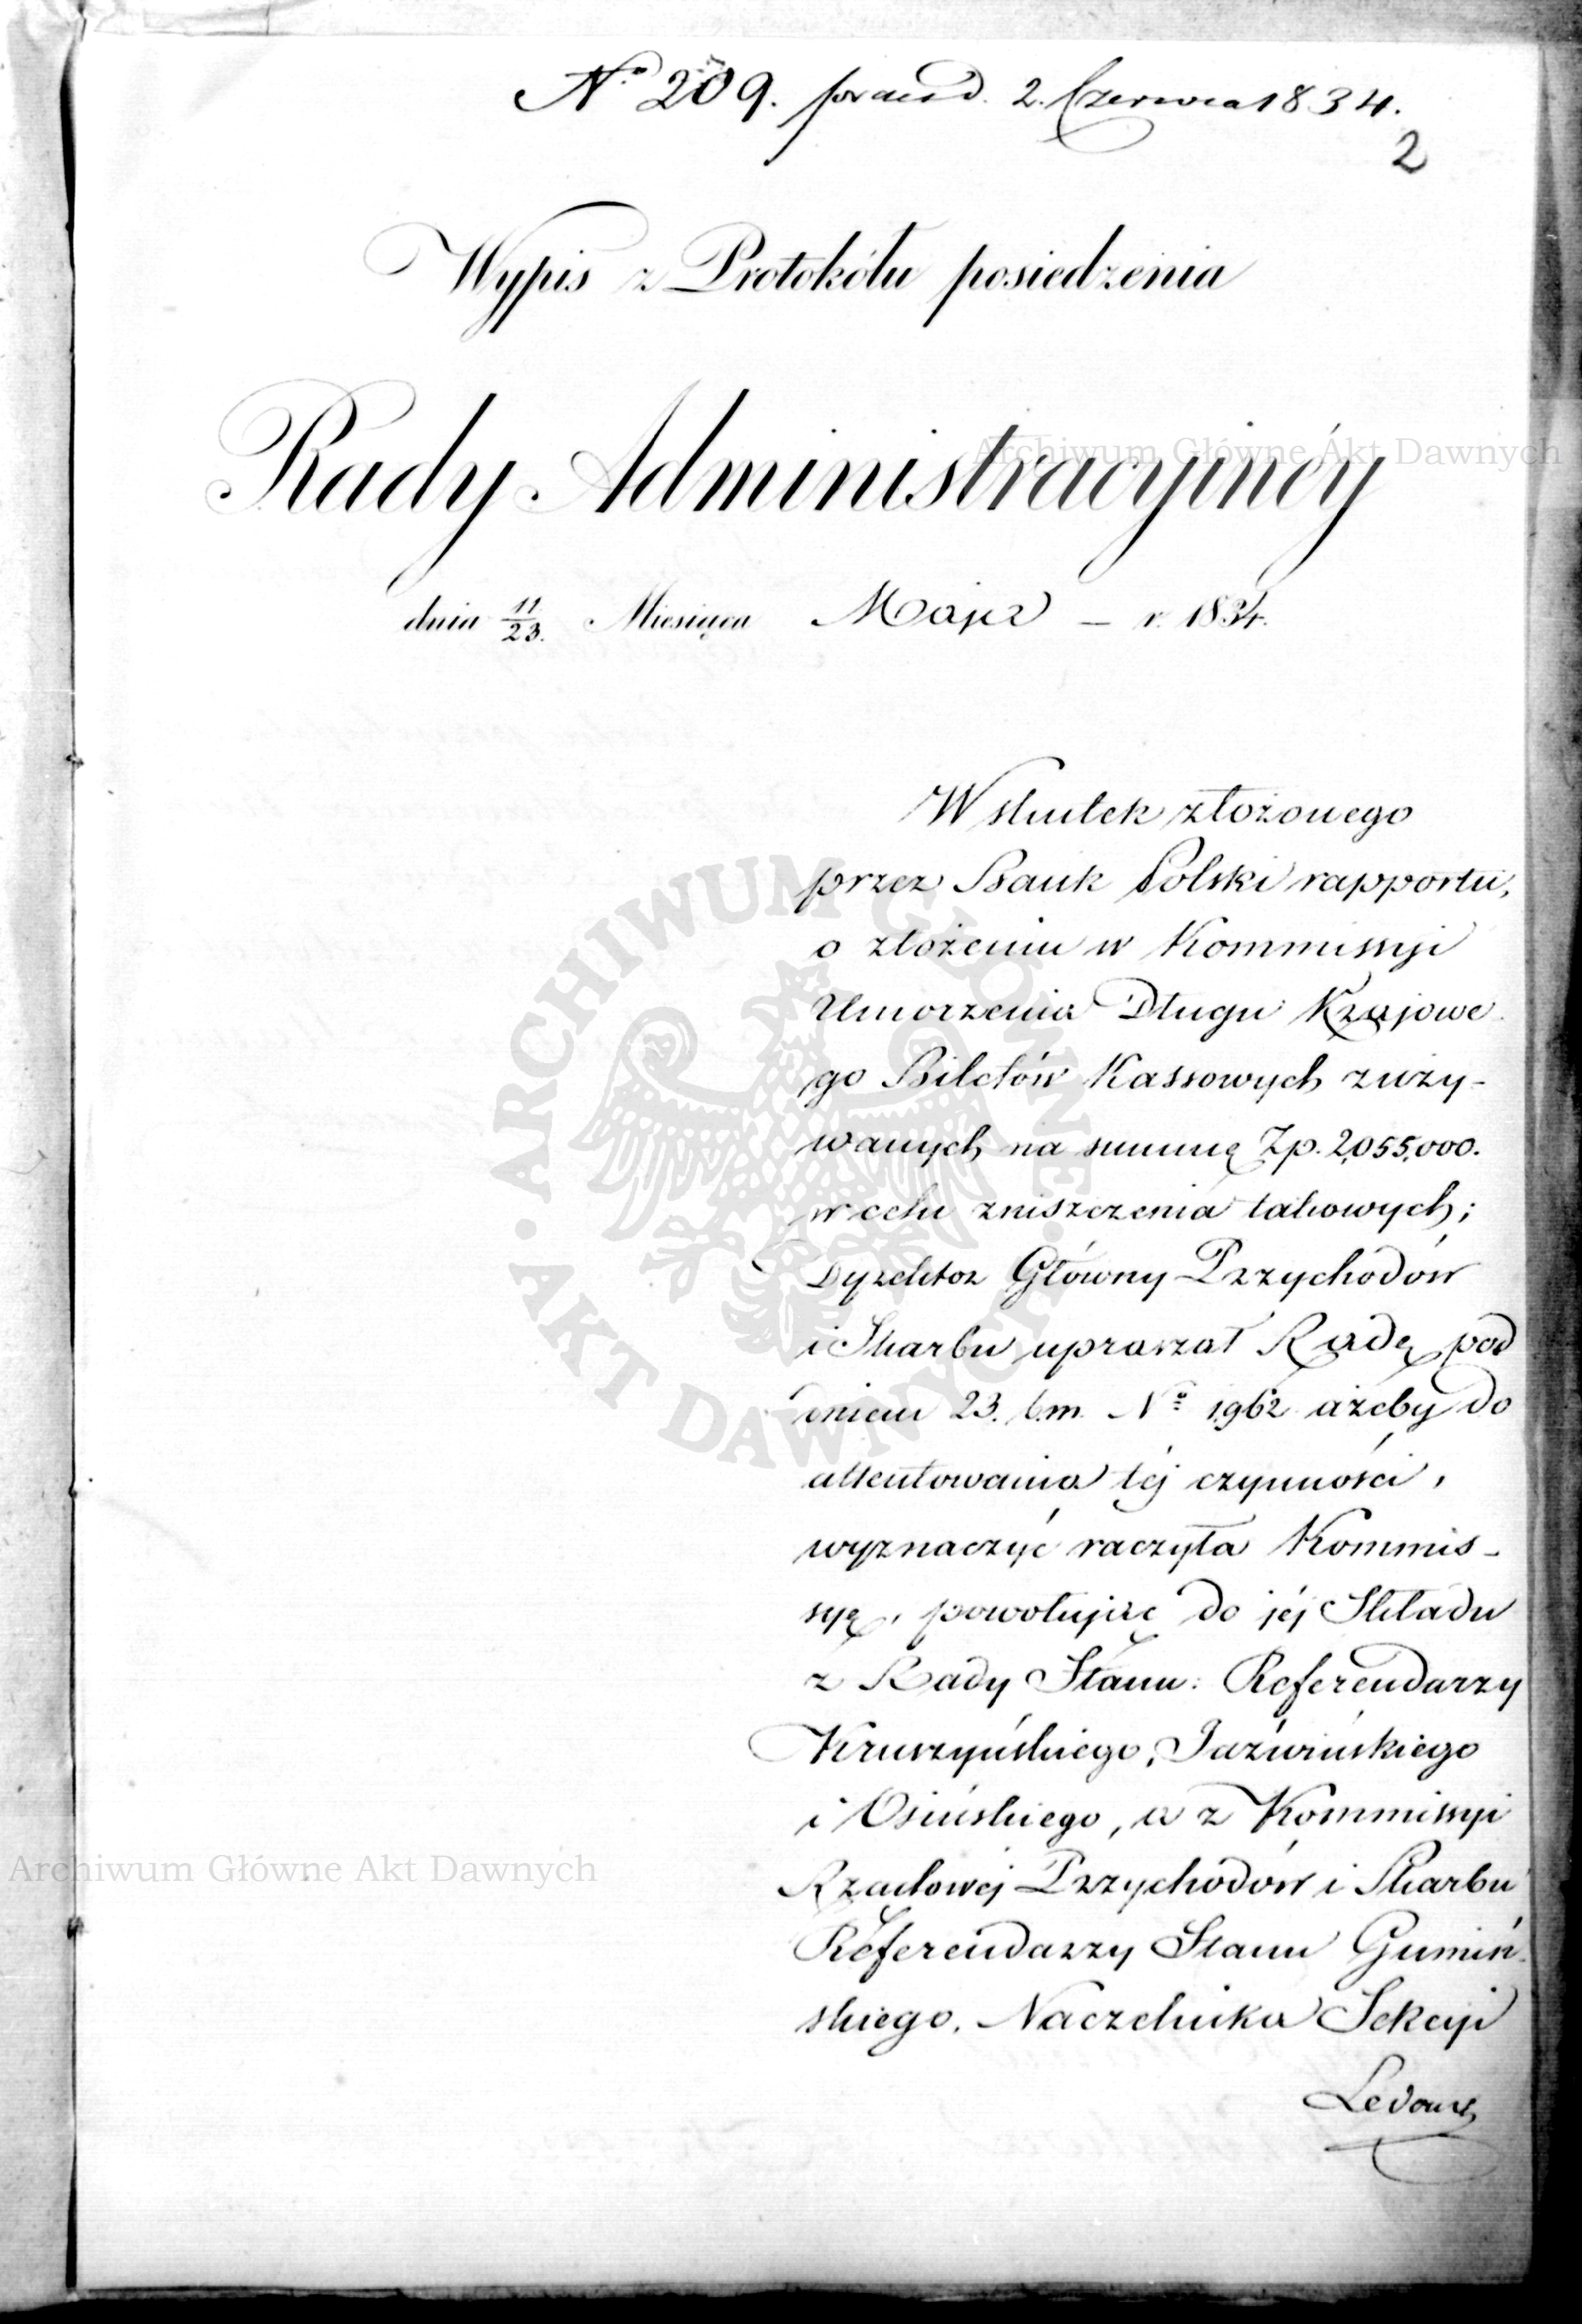 Nº 209. praes d. 2. Czerwca 1834.
2
Wypis z Protokółu posiedzenia
Rady Administracyjnéy
dnia 11/23. Miesiąca Maja – r. 1834.
W skutek złożonego
przez Bank Polski rapportu,
o złożeniu w Kommissyi
Umorzenia Długu Krajowe-
go Biletów Kassowych zuży-
wanych na summę Zp. 2,055,000.
w celu zniszczenia takowych;
Dyrektor Główny Przychodów
i Skarbu upraszał Radę pod
dniem 23. b.m. Nº 1962 ażeby do
attentowania téj czynności,
wyznaczyć raczyła Kommis-
syę, powołując do jéj Składu
z Rady Stanu: Referendarzy
Kruszyńskiego, Jaźwińskiego
i Osińskiego, a z Kommissyi
Rządowéj Przychodów i Skarbu
Referendarzy Stanu Gumiń-
skiego, Naczelnika Sekcyi
Archiwum Główne Akt Dawnych
ARCHIWUM GŁÓWNE · AKT DAWNYCH ·
Archiwum Główne Akt Dawnych